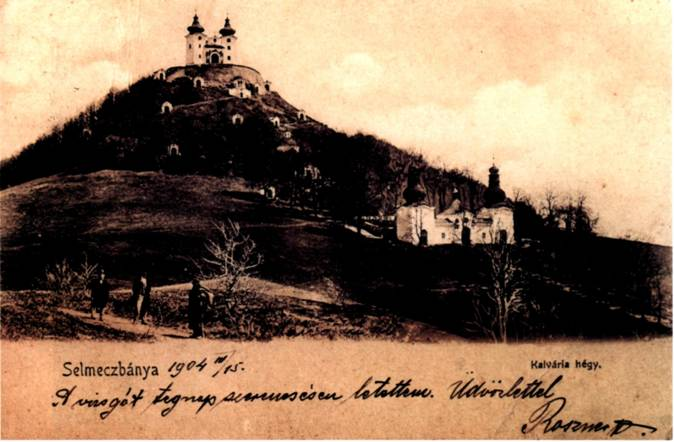 Selmeczbánya 1904 III/15.
Kalvária hégy.
A vizsgát tegnap szerencsésen letettem. Üdvözlettel